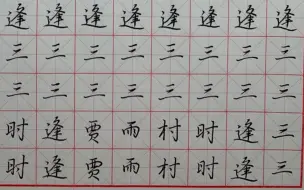 逢逢逢逢逢逢逢逢
三三三三三三三三
三三三三三三三三
时逢贾雨村时逢三
时逢贾雨村时逢三